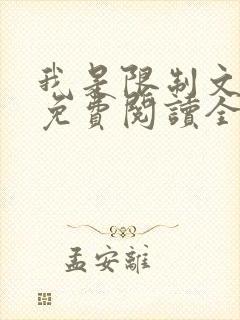 我是限制文
免費閱讀全
孟安離